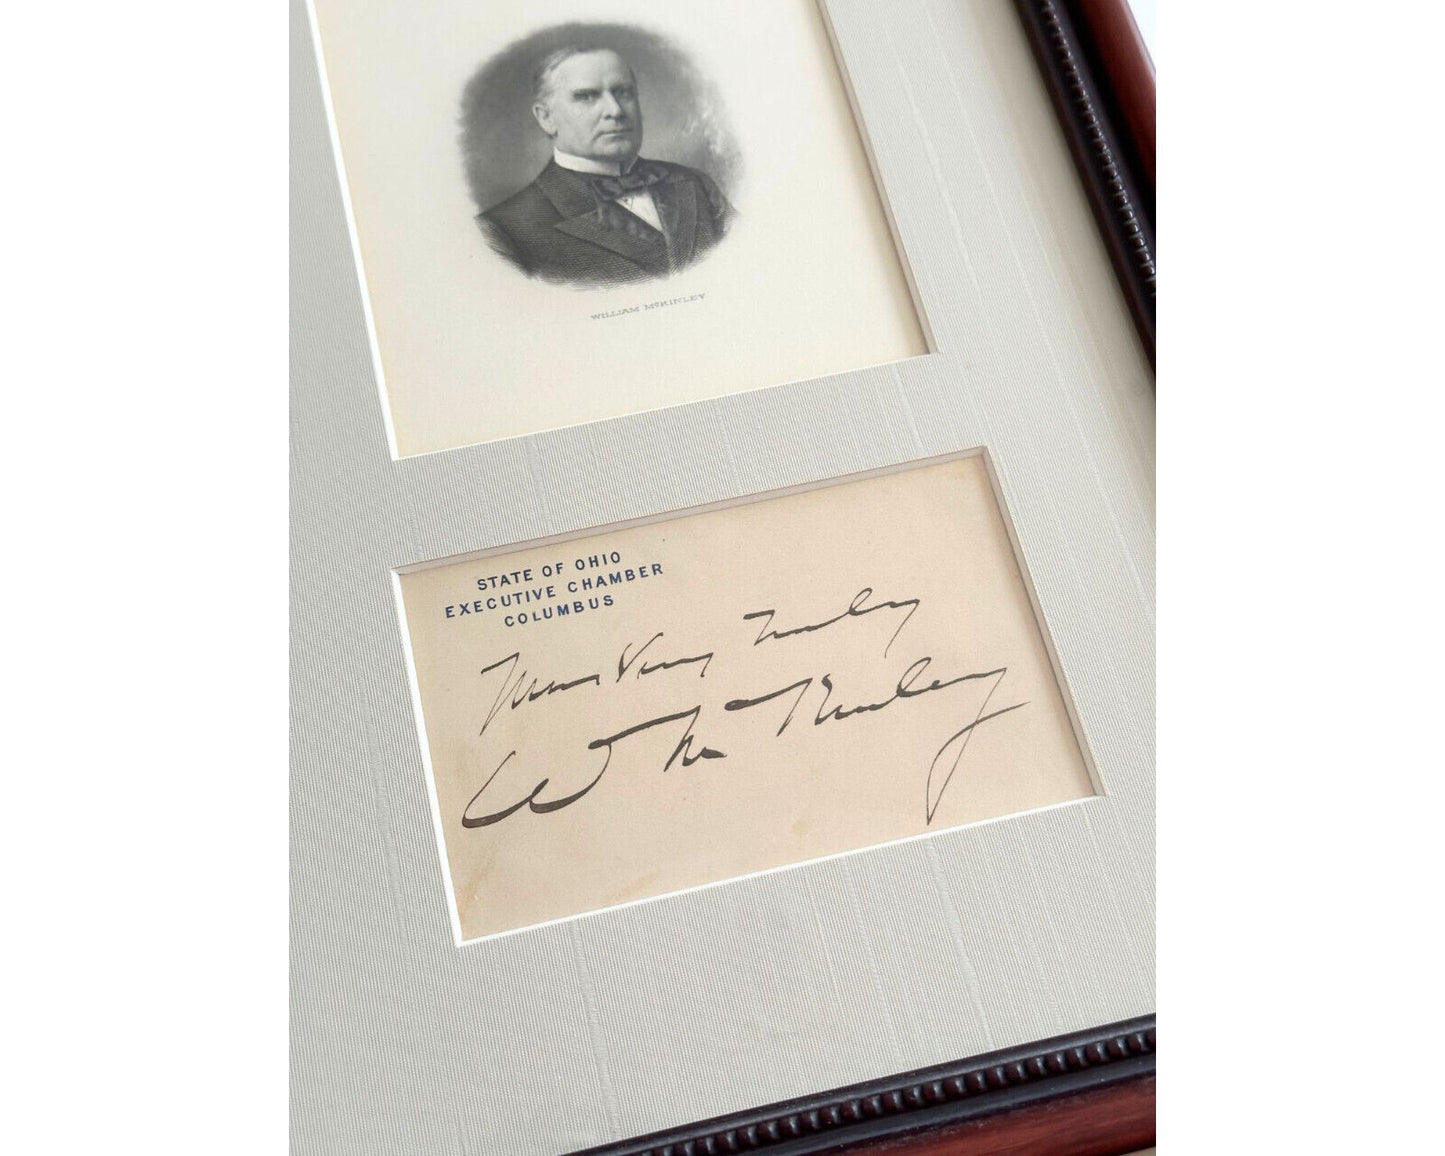 WILLIAM McKINLEY
STATE OF OHIO
EXECUTIVE CHAMBER
COLUMBUS
Yours Very Truly
Wm McKinley